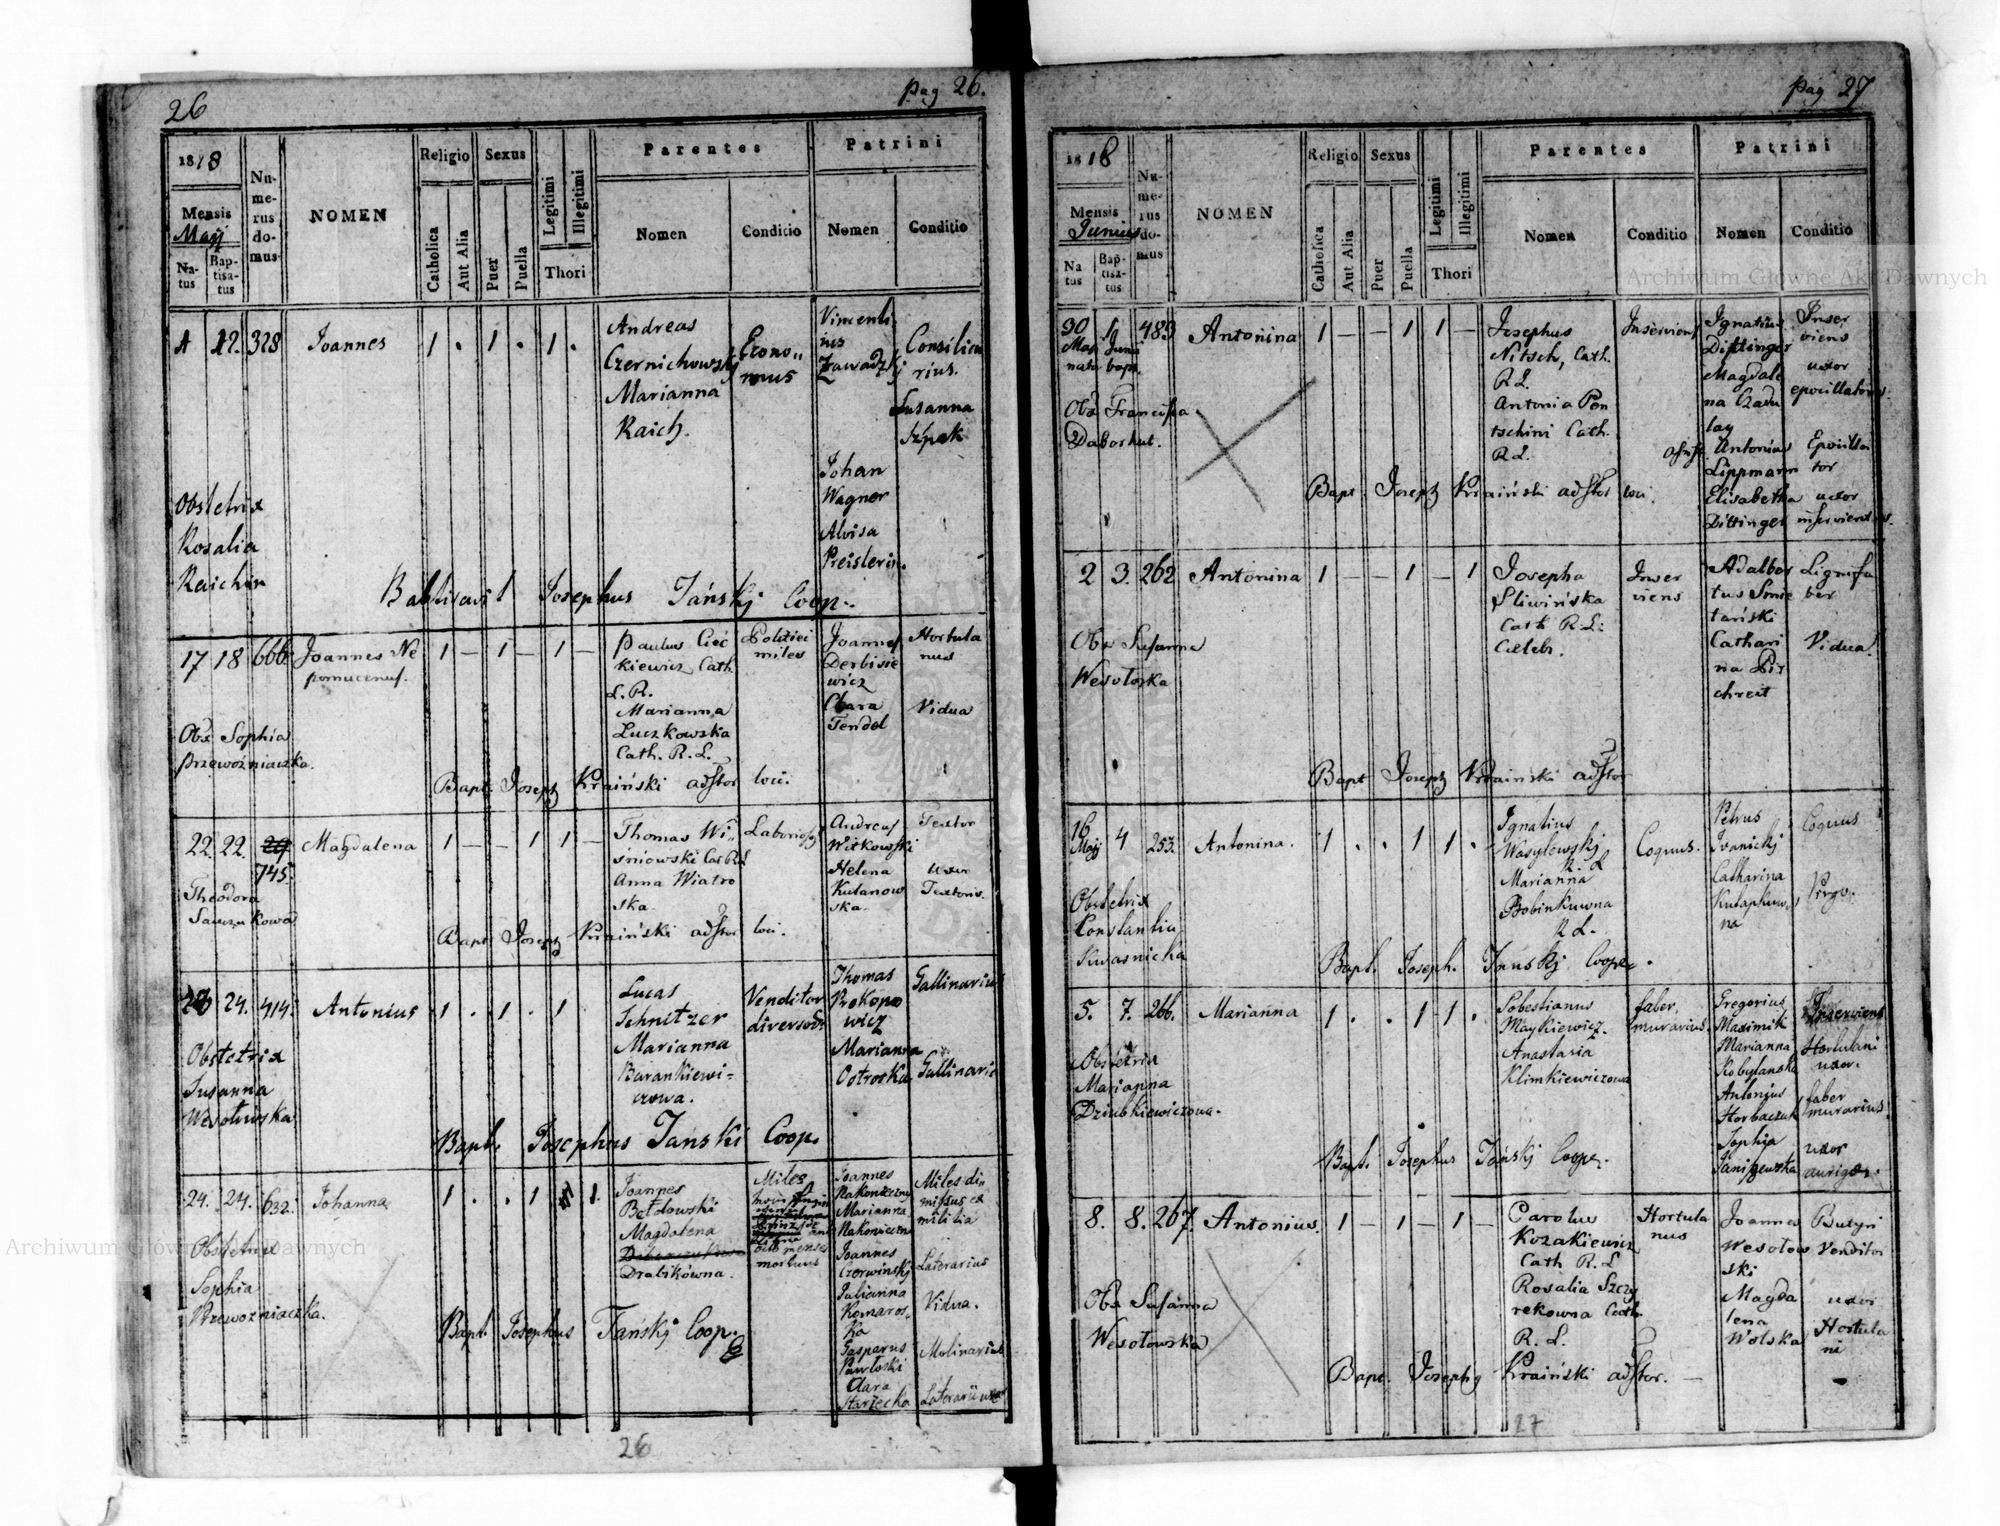 26
pag 26.
1818
Mensis
Maij
Na-
tus
Bap-
tisa-
tus
Nu-
me-
rus
do-
mus
NOMEN
Religio
Catholica
Aut Alia
Sexus
Puer
Puella
Legitimi
Illegitimi
Thori
Parentes
Nomen
Conditio
Patrini
Nomen
Conditio
12. 328 Joannes 1 . 1 . 1 .
Andreas
Czernichowskj
Marianna
Raich.
Econo
mus
Vincenti
nus
Zawadzkj
Consilia
rius.
Susanna
Szpak
Johan
Wagner
Aloisa
Preislerin.
Obstetrix
Rosalia
Raichin
Babtisavit Josephus Tánskj Coop.
17 18 666 Joannes Ne
pomucenus.
1 — 1 — 1 —
Paulus Cieć
kiewicz Cath
L. R.
Marianna
Luczkowska
Cath. R. L.
Politiei
miles
Joannes
Derbisie
wicz
Clara
Tendel
Hortula
nus
Vidua
Obx Sophia
Przewoźniaczka.
Bapt. Joseph Kraiński adstor loci.
22. 22. 745. Magdalena 1 — — 1 1 —
Thomas Wi
śniowski
Anna Wiatro
ska
Andreas
Witkowski
Helena
Kulanow
ska.
Textor
uxor
Textoris.
Theodora
Bapt Joseph Kraiński adstor loci.
24. 414. Antonius 1 . 1 . 1
Lucas
Schnitzer
Marianna
Barankiewi-
czowa.
Venditor
diversor.
Thomas
Prokopo
wicz
Marianna
Ostroska
Gallinarius
Gallinaria
Obstetrix
Susanna
Wesołowska
Bapt. Josephus Tański Coop.
24. 24. 632. Johanna 1 . . 1 1.
Joannes
Bełdowski
Magdalena
Drabikówna.
Miles
menses
mortuus
Joannes
Nakonieczny
Marianna
Nakonieczna
Joannes
Czerwinskj
Julianna
Komaros
ka
Gasparus
Pawłoski
Clara
Starzecka
Miles di
missus ex
militia
Laterarius
Vidua.
Molinarius
Laterarii uxor
Obstetrix
Sophia
Przewozniaczka.
Bapt. Josephus Tańskj Coop.
26
pag 27
1818
Mensis
Junius
Na
tus
Bap-
tisa-
tus
Nu-
me-
rus
do-
mus
NOMEN
Religio
Catholica
Aut Alia
Sexus
Puer
Puella
Legitimi
Illegitimi
Thori
Parentes
Nomen
Conditio
Patrini
Nomen
Conditio
30 1 483 Antonina 1 — — 1 1 —
Maj Junii
nata bapt.
Josephus
Nitsch, Cath.
R L.
Antonia Pon
tschini Cath.
R L.
Inserviens
Ignatius
Dittinger
Magdale
na Czadu
lay
Antonius
Lippmann
Elisabetha
Dittinger
Inser
viens
uxor
epocillatoris.
Epocilla
tor
uxor
inservientis.
Obx Francisca
Daborhut.
Bapt. Joseph Kraiński adstor loci.
2 3. 262 Antonina 1 — — 1 — 1
Josepha
Sliwińska
Cath R L:
Celebs.
Inser
viens
Adalber
tus Smie
tański
Cathari
na Pir
chreit
Lignifa
ber
Vidua.
Obx Susanna
Wesołoska
Bapt Joseph Kraiński adstor
16 4 253. Antonina. 1 . . 1 1 .
Maij
Ignatius
Wasylewskj
R L
Marianna
Bobinkuwna
R L.
Coquus.
Petrus
Ivanickj
Catharina
Kutapkuw
na
Coquus
Virgo.
Obstetrix
Constantia
Kwasnicka
Bapt. Joseph. Tanskj Cooper.
5. 7. 266. Marianna 1 . . 1 1 .
Sebestianus
Maykiewicz.
Anastasia
Klimkiewiczowa
faber
murarius.
Gregorius
Maximik
Marianna
Kobylanska
Antonius
Horbaczuk
Sophia
Janiszewska
Inserviens
Hortulani
uxor.
faber
murarius.
uxor
aurigae.
Obstetrix
Marianna
Dziubkiewiczowa.
Bapt. Josephus Tánskj Cooper.
8. 8. 267 Antonius. 1 — 1 — 1 —
Carolus
Kozakiewicz
Cath R. L
Rosalia Szczy
rekowna Cath.
R. L.
Hortula
nus
Joannes
Wesołow
ski
Magda
lena
Wolska
Butyri
Venditor
uxor
Hortula
ni
Obx Susanna
Wesołowska
Bapt. Joseph Kraiński adstor. —
27
Archiwum Główne Akt Dawnych
Archiwum Główne Akt Dawnych